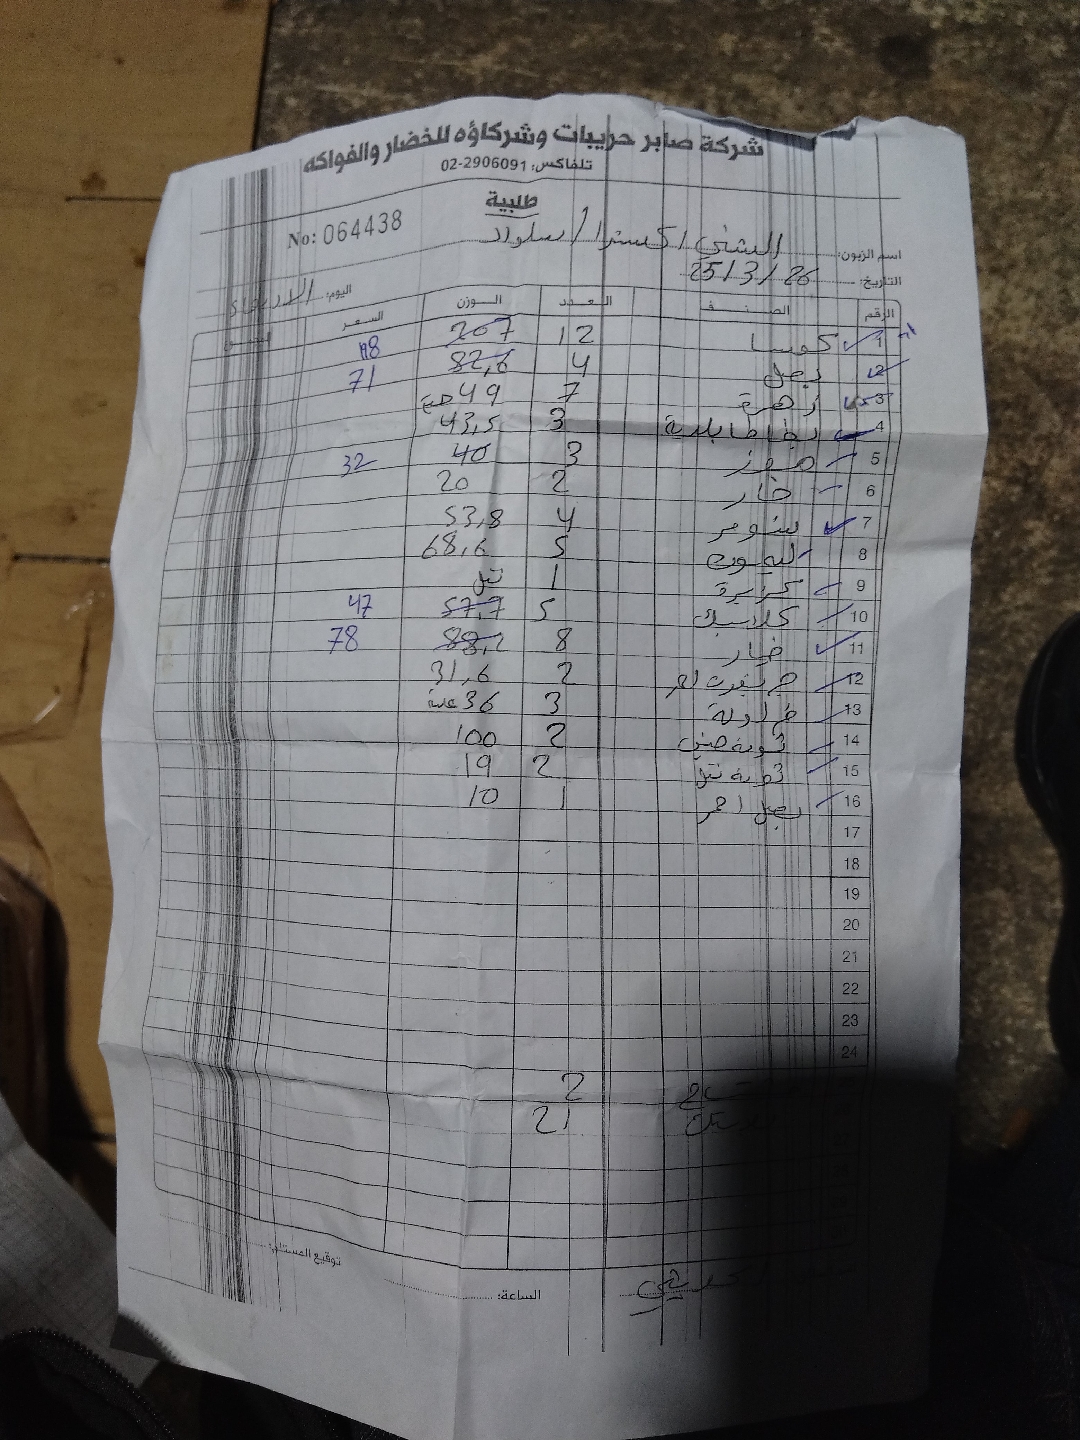 شركة صابر حريبات وشركاؤه للخضار والفواكه
تلفاكس: 02-2906091
طلبية
No: 064438
اسم الزبون: الشني اكسترا / سلواد
التاريخ: 25/3/26 اليوم: الاربعاء
الرقم الصنف العدد الوزن السعر
1 كوسا 12 207 198
2 بصل 4 82,6 71
3 زهرة 7 49 حبة
4 بطاطا بلدية 3 43,5
5 موز 3 40 32
6 2 20
7 بندورة 4 53,8
8 5 68,6
9 كزبرة 1
10 كلاسيك 5 57,7 47
11 خيار 8 88,2 78
12 جريفوت احمر 2 31,6
13 فراولة 3 36 علبة
14 ثومة صيني 2 100
15 ثومة 2 19
16 بصل احمر 1 10
17
18
19
20
21
22
23
24
2
21
توقيع المستلم:
الساعة: